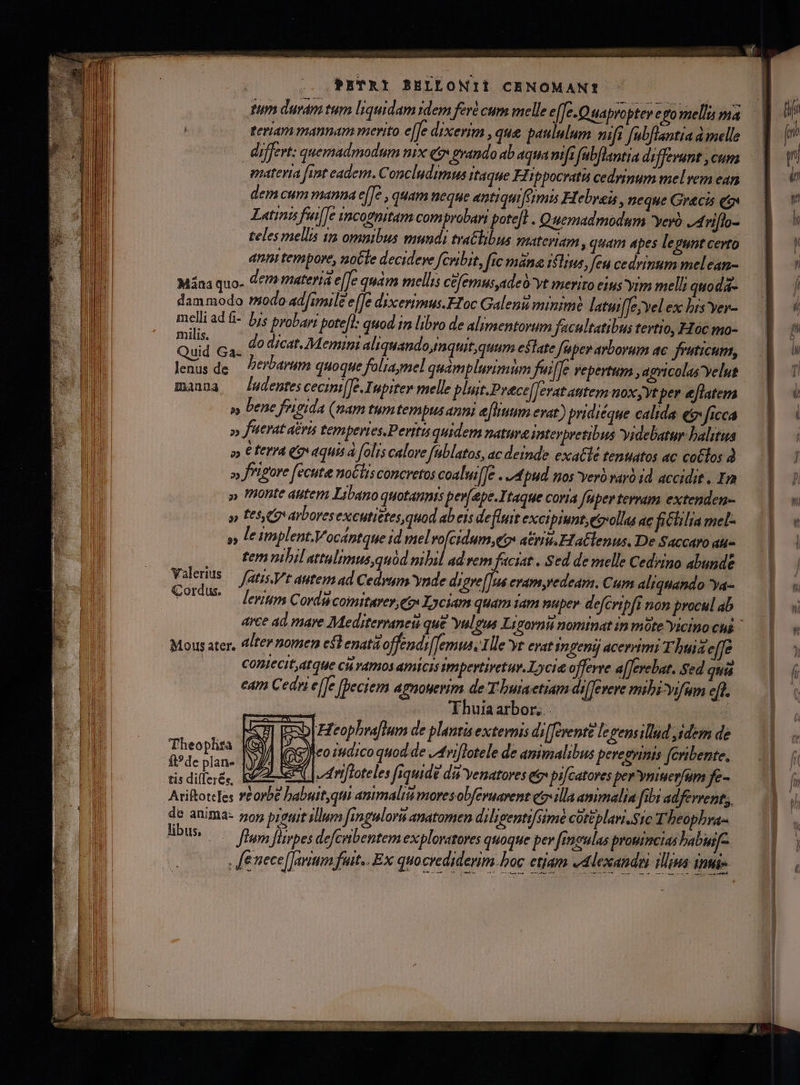 PETRI BELLONII CENOMANI
tum durãm tum liquidam idem ferè cum melle esse. Quapropter ego mellis ma
teriam mannam merito esse dixerim, quæ paululum nisi substantia à melle
differt: quemadmodum nix & grando ab aqua nisi substantia differunt, cum
materia sint eadem. Concludimus itaque Hippocratis cedrinum mel rem ean
dem cum manna esse, quam neque antiquissimis Hebræis, neque Græcis &
Latinis fuisse incognitam comprobari potest. Quemadmodum verò Aristo-
teles mellis in omnibus mundi tractibus materiam, quam apes legunt certo
anni tempore, nocte decidere scribit, sic mãna istius, seu cedrinum mel ean-
Mãna quo- dem materiã esse quàm mellis cẽsemus, adeò vt merito eius vim melli quodã-
dammodo modo adsimilẽ esse dixerimus. Hoc Galenũ minimè latuisse, vel ex his ver-
melli ad si- bis probari potest: quod in libro de alimentorum facultatibus tertio, Hoc mo-
milis.
Quid Ga- do dicat. Memini aliquando, inquit, quum estate super arborum ac fruticum,
lenus de herbarum quoque folia, mel quàmplurimùm fuisse repertum, agricolas velut
manna ludentes cecinisse. Iupiter melle pluit. Præcesserat autem nox, vt per æstatem
» bene frigida (nam tum tempus anni æstiuum erat) pridiéque calida & sicca
» fuerat aëris temperies. Peritis quidem naturæ interpretibus videbatur halitus
» è terra & aquis à solis calore sublatos, ac deinde exactè tenuatos ac coctos à
» frigore secutæ noctis concretos coaluisse. Apud nos verò rarò id accidit. In
» monte autem Libano quotannis persæpe. Itaque coria super terram extenden-
» tes, & arbores excutiẽtes, quod ab eis defluit excipiunt, & ollas ac fictilia mel-
» le implent. Vocántque id mel roscidum, & aëriũ. Hactenus. De Saccaro au-
tem nihil attulimus, quòd nihil ad rem faciat. Sed de melle Cedrino abundẽ
Valerius satis. Vt autem ad Cedrum vnde digressus eram, redeam. Cum aliquando Va-
Cordus. lerium Cordũ comitarer, & Lyciam quam iam nuper descripsi non procul ab
arce ad mare Mediterraneũ quẽ vulgus Ligornũ nominat in mõte vicino cui
Mous ater. alter nomen est enatã offendissemus, Ille vt erat ingenij acerrimi Thuiã esse
coniecit, atque cũ ramos amicis impertiretur. Lyciæ offerre asserebat. Sed quã
eam Cedri esse speciem agnouerim de Thuia etiam disserere mihi visum est.
Thuia arbor.
Theophrastum de plantis externis disserentẽ legens illud, idem de
Theophra eo iudico quod de Aristotele de animalibus peregrinis scribente.
st⁹ de plan- Aristoteles siquidẽ dũ venatores & piscatores per vniuersum fe-
tis differẽs,
Aristoteles rè orbẽ habuit, qui animaliũ mores obseruarent & illa animalia sibi adferrent,
de anima- non piguit illum singulorũ anatomen diligentissimè cõtẽplari. Sic Theophra-
libus. stum stirpes describentem exploratores quoque per singulas prouincias habuis-
se necessarium fuit. Ex quo crediderim hoc etiam Alexandri illius inui-